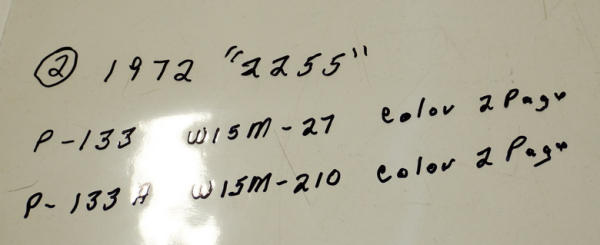 ② 1972 "2255"
P-133 W15M-27 Color 2 Page
P-133A W15M-210 Color 2 Page